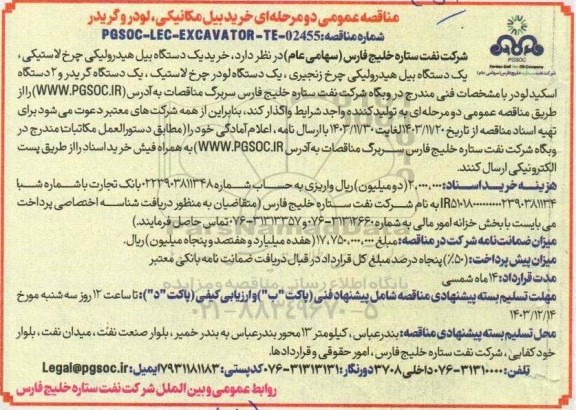 مناقصه عمومی دو مرحله‌ای خرید بیل مکانیکی، لودر و گریدر
شماره مناقصه: PGSOC-LEC-EXCAVATOR-TE-02455
PGSOC
شرکت نفت ستاره خلیج فارس (سهامی عام) در نظر دارد، خرید یک دستگاه بیل هیدرولیکی چرخ لاستیکی،
یک دستگاه بیل هیدرولیکی چرخ زنجیری، یک دستگاه لودر چرخ لاستیک، یک دستگاه گریدر و ۲ دستگاه
اسکید لودر با مشخصات فنی مندرج در وبگاه شرکت نفت ستاره خلیج فارس سربرگ مناقصات به آدرس (WWW.PGSOC.IR) را از
طریق مناقصه عمومی دو مرحله‌ای به تولید کننده واجد شرایط واگذار کند، بنابراین از همه شرکت‌های معتبر دعوت می‌شود برای
تهیه اسناد مناقصه از تاریخ ۱۴۰۳/۱۱/۲۰ لغایت ۱۴۰۳/۱۱/۳۰ با ارسال نامه، اعلام آمادگی خود را (مطابق دستورالعمل مکاتبات مندرج در
وبگاه شرکت نفت ستاره خلیج فارس سربرگ مناقصات به آدرس WWW.PGSOC.IR) به همراه فیش خرید اسناد را از طریق پست
الکترونیکی ارسال کنند.
هزینه خرید اسناد: ۲،۰۰۰،۰۰۰ (دو میلیون) ریال واریزی به حساب شماره ۰۲۲۳۹۰۳۸۱۱۳۴۸ بانک تجارت با شماره شبا
به نام شرکت نفت ستاره خلیج فارس (متقاضیان به منظور دریافت شناسه اختصاصی پرداخت
می بایست با بخش خزانه امور مالی به شماره ۳۱۳۱۲۶۶۰-۰۷۶ و ۳۱۳۱۳۳۵۷-۰۷۶ تماس حاصل فرمایند.)
میزان ضمانت نامه شرکت در مناقصه: مبلغ ۱۷،۷۵۰،۰۰۰،۰۰۰ (هفده میلیارد و هفتصد و پنجاه میلیون) ریال.
میزان پیش پرداخت: (۵۰٪) پنجاه درصد مبلغ کل قرارداد در قبال دریافت ضمانت نامه بانکی معتبر
مدت قرارداد: ۱۴ ماه شمسی
مهلت تسلیم بسته پیشنهادی مناقصه شامل پیشنهاد فنی (پاکت "ب") و ارزیابی کیفی (پاکت "د"): تا ساعت ۱۲ روز سه شنبه مورخ
۱۴۰۳/۱۲/۱۴
محل تسلیم بسته پیشنهادی مناقصه: بندرعباس، کیلومتر ۱۳ محور بندرعباس به بندر خمیر، بلوار صنعت نفت، میدان نفت، بلوار
خودکفایی، شرکت نفت ستاره خلیج فارس، امور حقوقی و قراردادها.
تلفن: ۳۱۳۱۰۰۰۰-۰۷۶ داخلی ۳۷۰۸ دورنگار: ۳۱۳۱۳۱۳۱-۰۷۶ کدپستی: ۷۹۳۱۱۸۱۱۸۳ ایمیل: Legal@pgsoc.ir
روابط عمومی و بین الملل شرکت نفت ستاره خلیج فارس